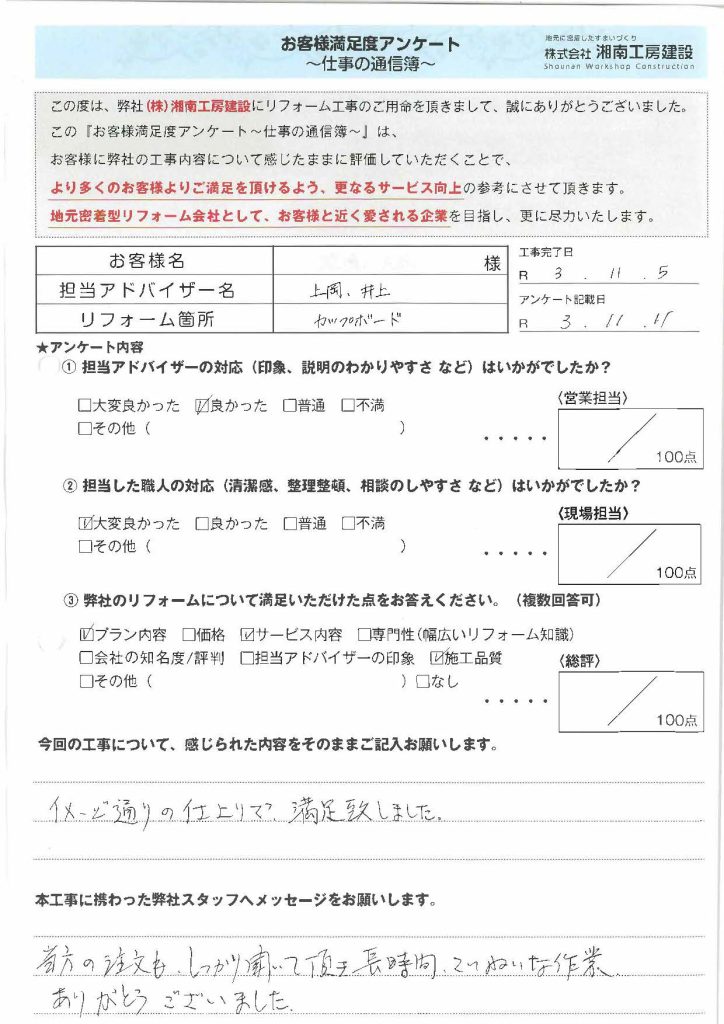 お客様満足度アンケート
～仕事の通信簿～
地元に密着したすまいづくり
株式会社 湘南工房建設
Shounan Workshop Construction
この度は、弊社(株)湘南工房建設にリフォーム工事のご用命を頂きまして、誠にありがとうございました。
この『お客様満足度アンケート～仕事の通信簿～』は、
お客様に弊社の工事内容について感じたままに評価していただくことで、
より多くのお客様よりご満足を頂けるよう、更なるサービス向上の参考にさせて頂きます。
地元密着型リフォーム会社として、お客様と近く愛される企業を目指し、更に尽力いたします。
お客様名 様
担当アドバイザー名 上岡、井上
リフォーム箇所 カップボード
工事完了日
R 3 . 11 . 5
アンケート記載日
R 3 . 11 .
★アンケート内容
① 担当アドバイザーの対応（印象、説明のわかりやすさ など）はいかがでしたか？
□大変良かった ☑良かった □普通 □不満
□その他（ ）
〈営業担当〉
・・・・・ ／ 100点
② 担当した職人の対応（清潔感、整理整頓、相談のしやすさ など）はいかがでしたか？
☑大変良かった □良かった □普通 □不満
□その他（ ）
〈現場担当〉
・・・・・ ／ 100点
③ 弊社のリフォームについて満足いただけた点をお答えください。（複数回答可）
☑プラン内容 □価格 ☑サービス内容 □専門性(幅広いリフォーム知識)
□会社の知名度/評判 □担当アドバイザーの印象 ☑施工品質
□その他（ ）□なし
〈総評〉
・・・・・ ／ 100点
今回の工事について、感じられた内容をそのままご記入お願いします。
イメージ通りの仕上りで、満足致しました。
本工事に携わった弊社スタッフへメッセージをお願いします。
当方の注文も、しっかり聞いて頂き長時間、ていねいな作業、
ありがとうございました。